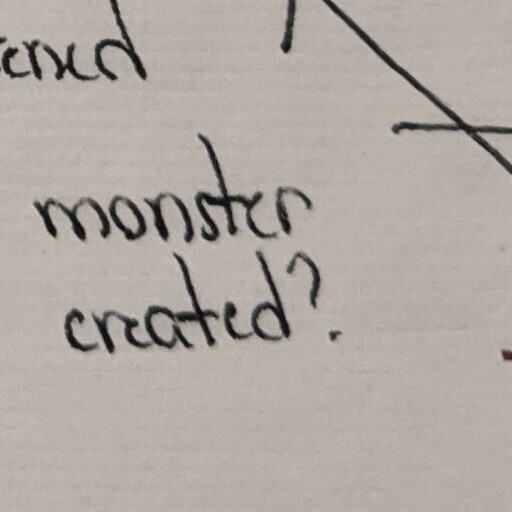 monster
created?